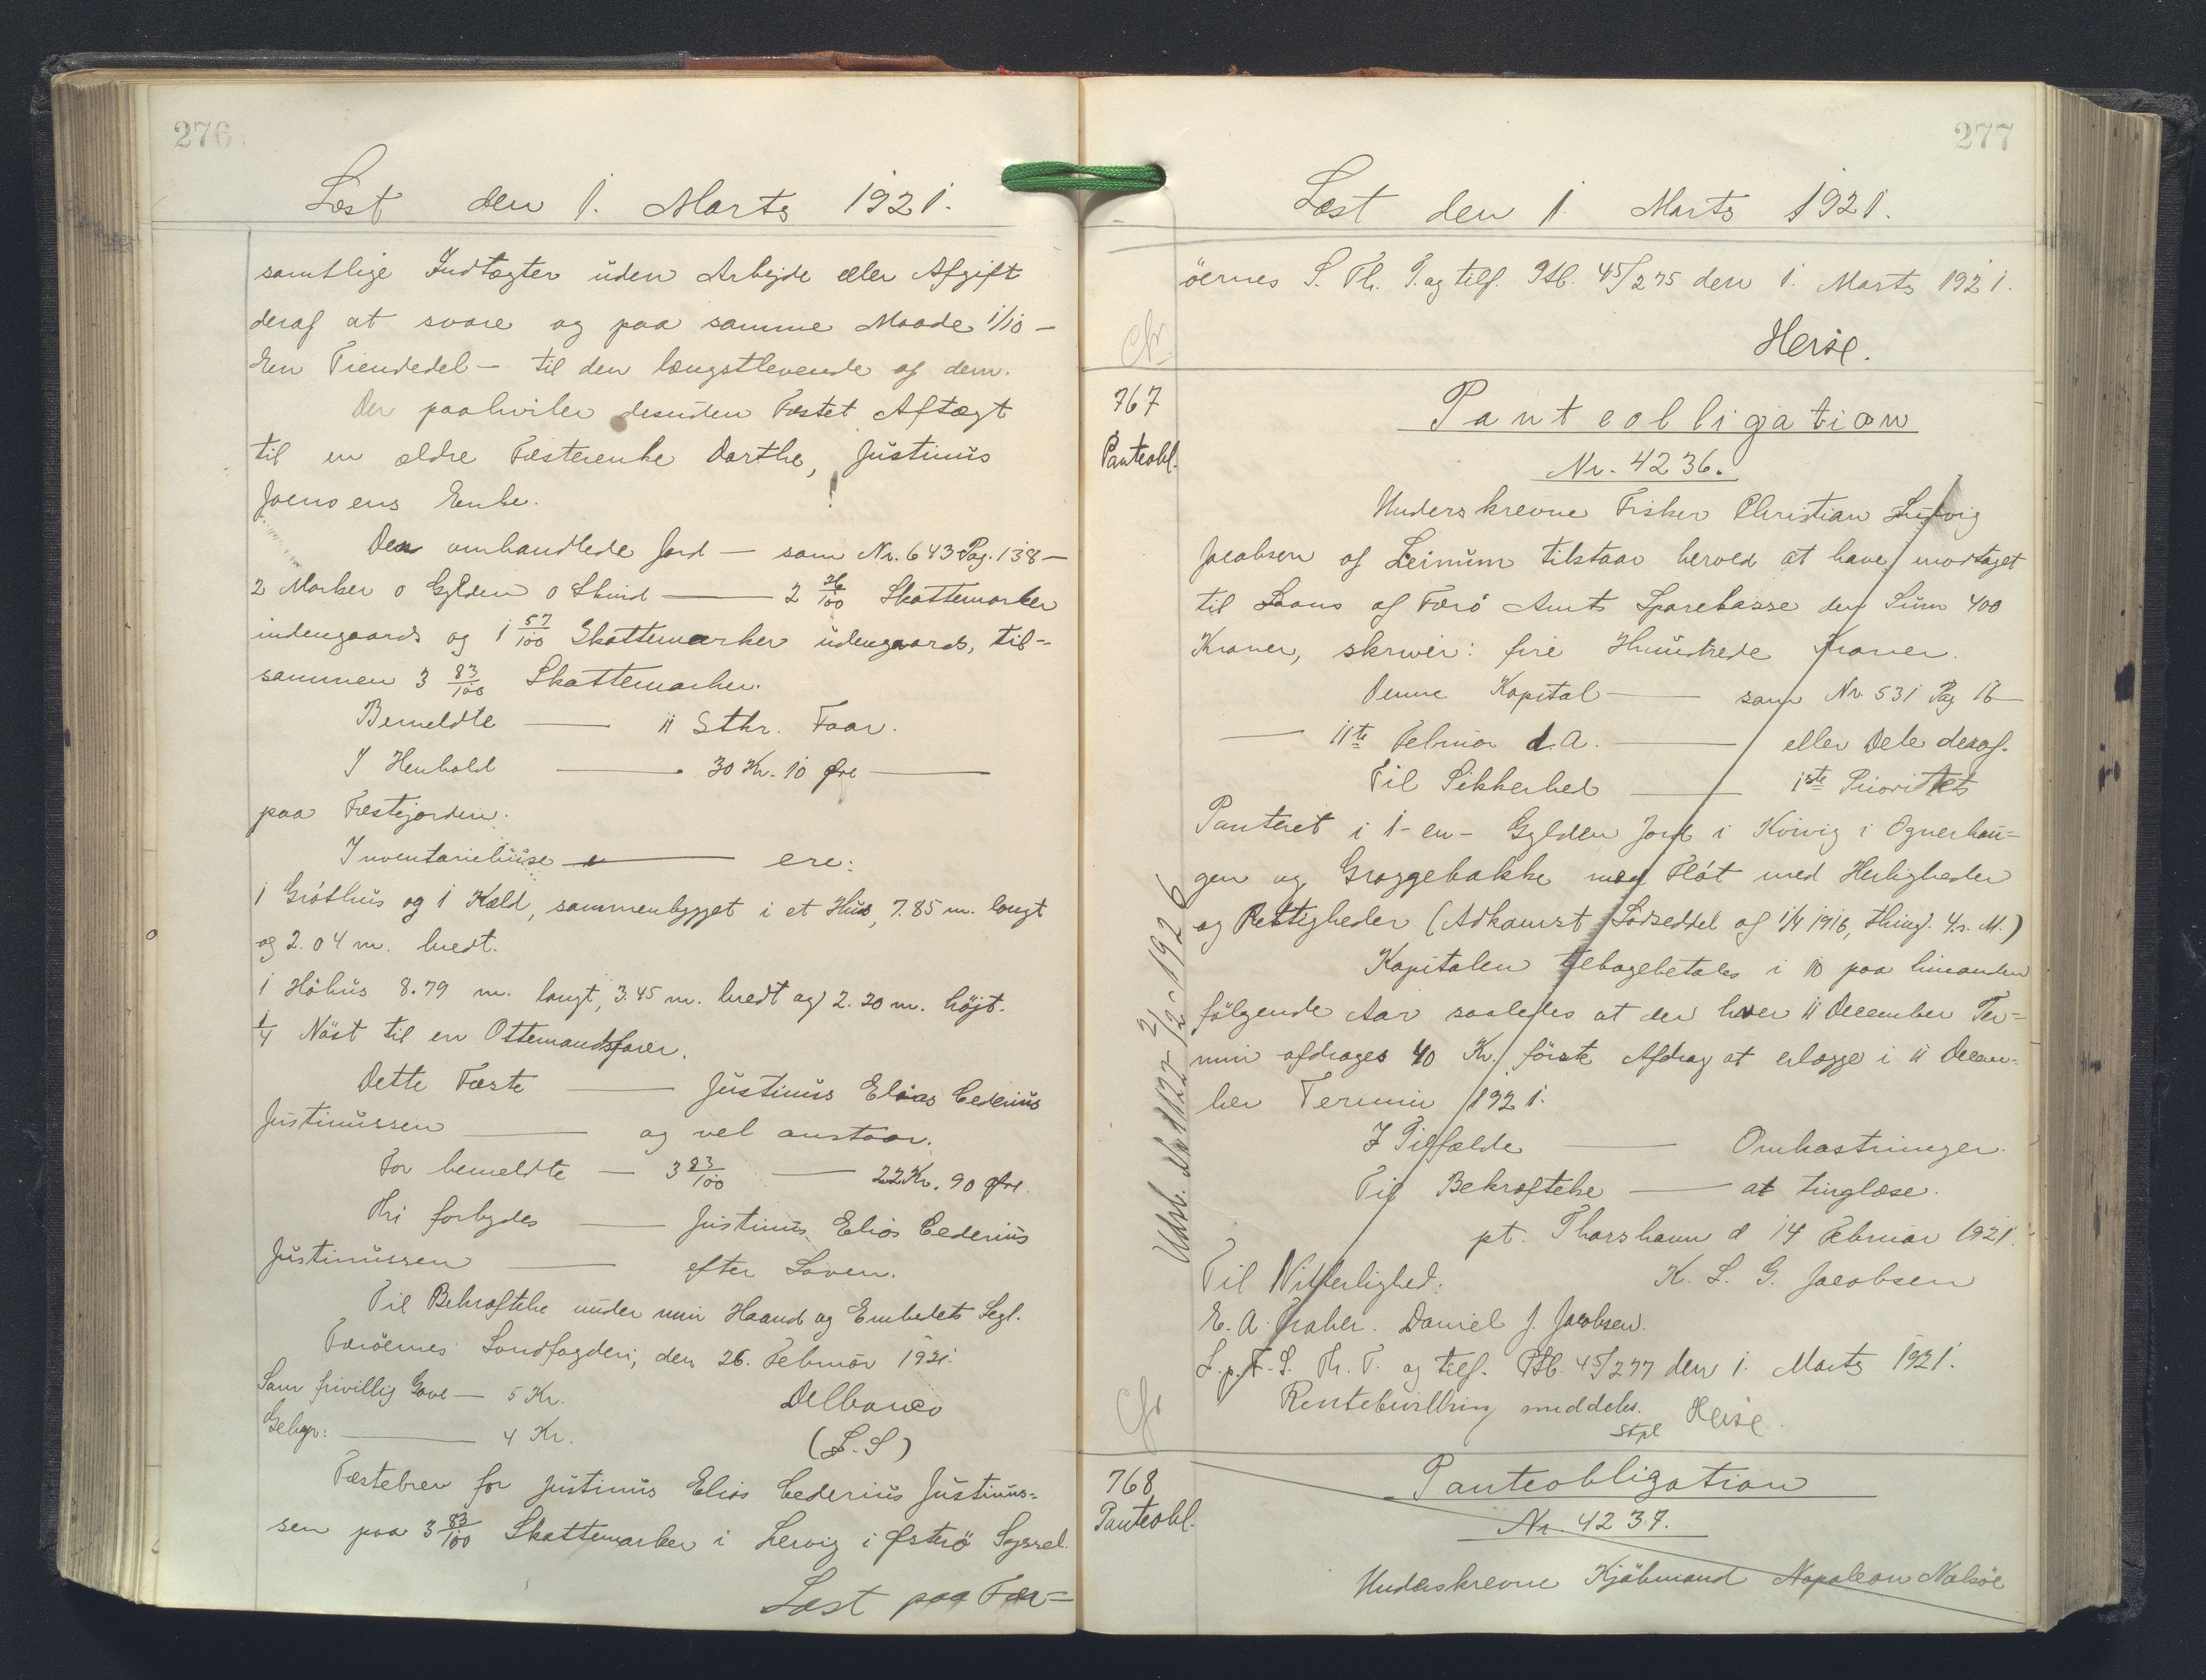 276.
Læst den 1. Marts 1921.
samtlige Indtægter uden Arbejde eller Afgift
deraf at svare og paa samme Maade 1/10 –
En Tiendedel – til den længstlevende af dem.
Der paahviler desuden Fæstet Aftægt
til en ældre Fæsterenke Darthe, Justinus
Joensens Enke.
Den omhandlede Jord — som Nr. 643 Pag. 138 —
2 Marker 0 Gylden 0 Skind —— 2 26/100 Skattemarker
indengaards og 1 57/100 Skattemarker udengaards, til=
sammen 3 83/100 Skattemarker.
Bemeldte —— 11 Stkr. Faar.
I Henhold —— 30 Kr. 10 Øre ——
paa Fæstejorden.
Inventariehuse —— ere:
1 Gróthus og 1 Kæld, sammenbygget i et Hus, 7.85 m. langt
og 2.04 m. bredt.
1 Höhus 8.79 m. langt, 3.45 m. bredt og 2.20 m. höjt.
1/4 Nöst til en Ottemandsfarer.
Dette Fæste —— Justinus Elias Cederius
Justinussen —— og vel anstaar.
For bemeldte — 3 83/100 —— 22 Kr. 90 Øre.
Thi forbydes —— Justinus Elias Cederius
Justinussen —— efter Loven.
Til Bekræftelse under min Haand og Embedets Segl.
Færöernes Landfogderi, den 26. Februar 1921.
Som frivillig Gave — 5 Kr. Delbanco
Gebyr: —— 4 Kr. (L.S)
Fæstebrev for Justinus Elias Cederius Justinus=
sen paa 3 83/100 Skattemarker i Lervig i Østerö Syssel.
Læst paa Fær=
277
Læst den 1. Marts 1921.
öernes S. Th. P. og tilf. Ptb. 45/275 den 1. Marts 1921.
Heise.
767
Panteobl.
Panteobligation
Nr. 4236.
Underskrevne Fisker Christian Ludvig
Jacobsen af Leinum tilstaar herved at have modtaget
til Laans af Færö Amts Sparekasse den Sum 400
Kroner, skriver: fire Hundrede Kroner.
Denne Kapital —— som Nr. 531 Pag 16 —
—— 11te Februar d.A. —— eller Dele deraf.
Til Sikkerhed —— 1ste Prioritets
Panteret i 1 - en - Gylden Jord i Kvivig i Ognerhau=
gen og Groggebakke med Flöt med Herligheder
og Rettigheder (Adkomst Lodseddel af 1/4 1916, thingl. 4. s. M.)
Kapitalen tilbagebetales i 10 paa hinanden
fölgende Aar saaledes at der hver 11 December Ter=
min afdrages 40 Kr., förste Afdrag at erlægge i 11 Decem=
ber Termin 1921.
I Tilfælde —— Omkostninger.
Til Bekræftelse —— at tinglæse.
pt. Thorshavn d 14 Februar 1921.
Til Vitterlighed: K. L. G. Jacobsen
E. A. Daniel J. Jacobsen.
L. p. F. S. Th. P. og tilf. Ptb. 45/277 den 1. Marts 1921.
Rentebevilling meddelt. Heise.
Stpl
Udsl. Nr 1127 2/2-1926
768
Panteobl.
Panteobligation
Nr. 4237.
Underskrevne Kjöbmand Napoleon Nolsöe